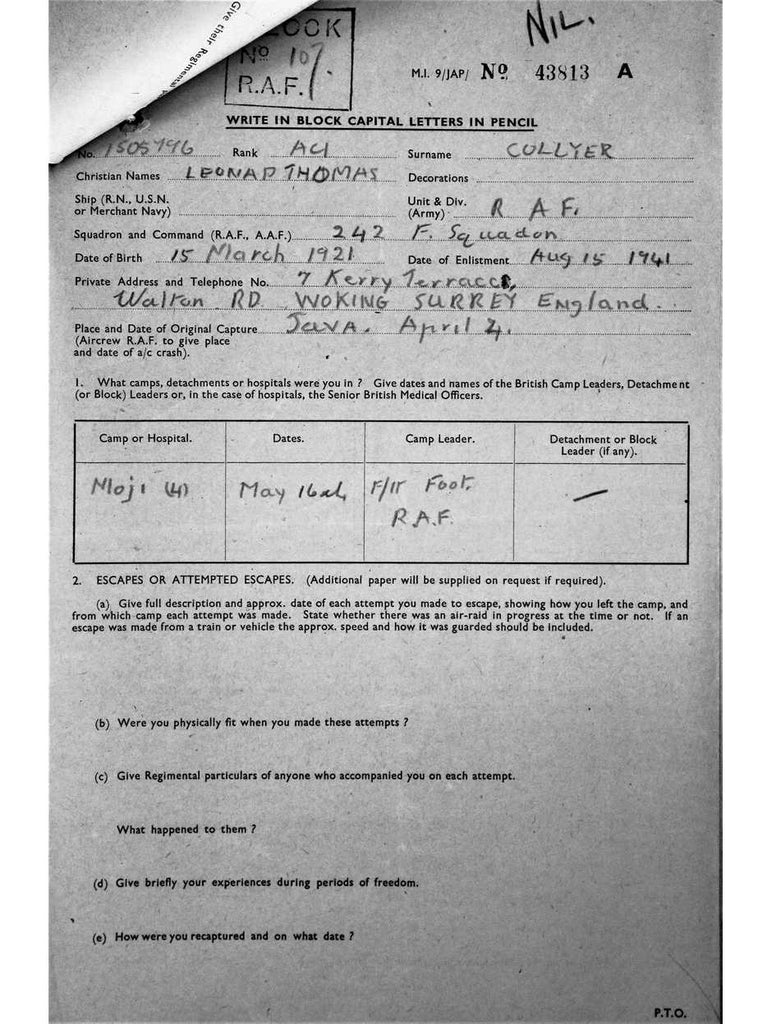 Give their Regimental
NIL.
Nº 107
R.A.F.
M.I. 9/JAP/ Nº 43813 A
WRITE IN BLOCK CAPITAL LETTERS IN PENCIL
No. 1505796 Rank AC1 Surname COLLYER
Christian Names LEONAD THOMAS Decorations
Ship (R.N., U.S.N. or Merchant Navy) Unit & Div. (Army) R A F.
Squadron and Command (R.A.F., A.A.F.) 242 F. Squadon
Date of Birth 15 March 1921 Date of Enlistment Aug 15 1941
Private Address and Telephone No. 7 Kerry Terrace,
Walton RD WOKING SURREY England.
Place and Date of Original Capture Java. April 4.
(Aircrew R.A.F. to give place
and date of a/c crash).
1. What camps, detachments or hospitals were you in ? Give dates and names of the British Camp Leaders, Detachment
(or Block) Leaders or, in the case of hospitals, the Senior British Medical Officers.
Camp or Hospital. Dates. Camp Leader. Detachment or Block
Leader (if any).
(4) May F/lt Foot. —
R.A.F.
2. ESCAPES OR ATTEMPTED ESCAPES. (Additional paper will be supplied on request if required).
(a) Give full description and approx. date of each attempt you made to escape, showing how you left the camp, and
from which camp each attempt was made. State whether there was an air-raid in progress at the time or not. If an
escape was made from a train or vehicle the approx. speed and how it was guarded should be included.
(b) Were you physically fit when you made these attempts ?
(c) Give Regimental particulars of anyone who accompanied you on each attempt.
What happened to them ?
(d) Give briefly your experiences during periods of freedom.
(e) How were you recaptured and on what date ?
P.T.O.